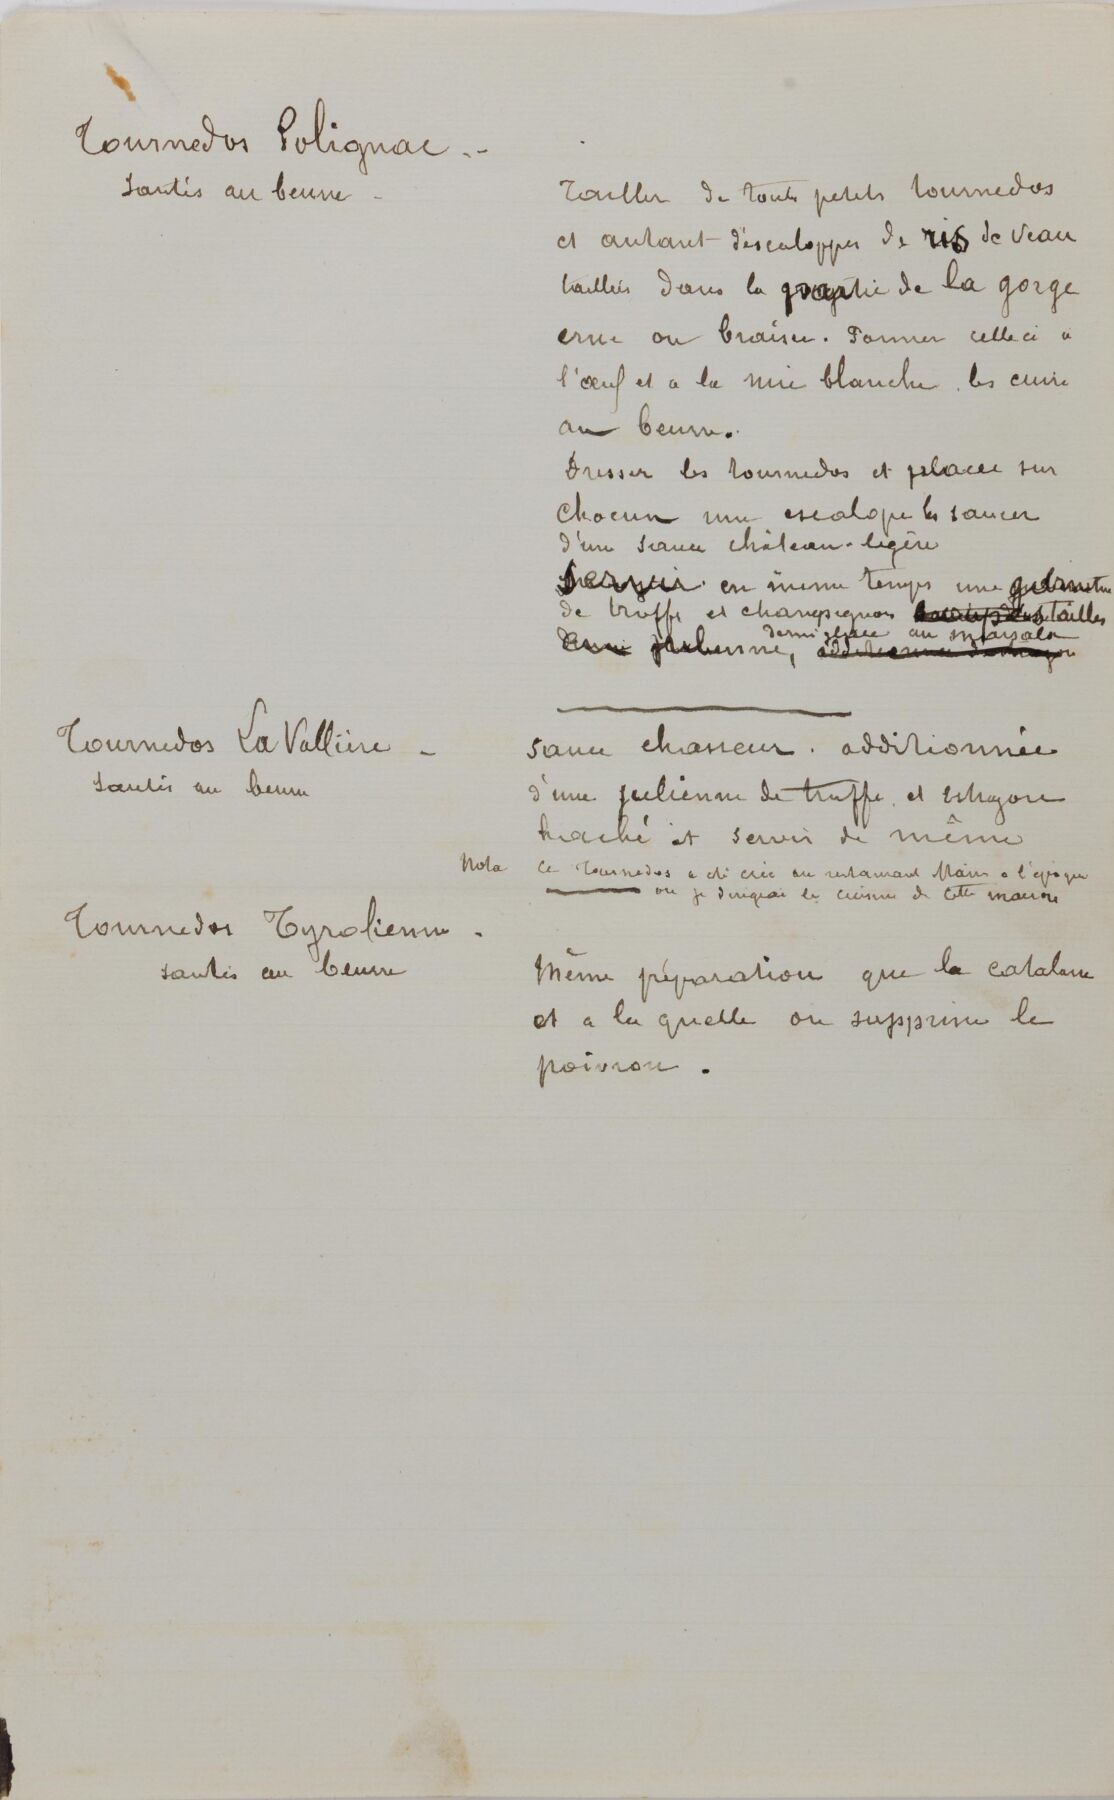 Tournedos Polignac --
Sautés au beurre -
Tailler de touts petits tournedos
et autant d'escaloppes de ris de veau
taillés dans la partie de la gorge
crue ou braisée. Panner celle ci a
l'œuf et a la mie blanche. les cuire
au beurre.
Dresser les tournedos et placer sur
chacun une escalope les saucer
d'une sauce château-legère
Servir en même temps une garniture
de truffe et champignons taillés
en julienne, demi glace au marsala
Tournedos La Vallière -
Sautés au beurre
Sauce chasseur. additionnée
d'une julienne de truffe et estragon
haché et servir de même
Nota ce Tournedos a été crée au restaurant Maire a l'époque
ou je dirigeai la cuisine de cette maison
Tournedos Tyrolienne -
Sautés au beurre
Même préparation que la catalane
et a la quelle on supprime le
poivron.